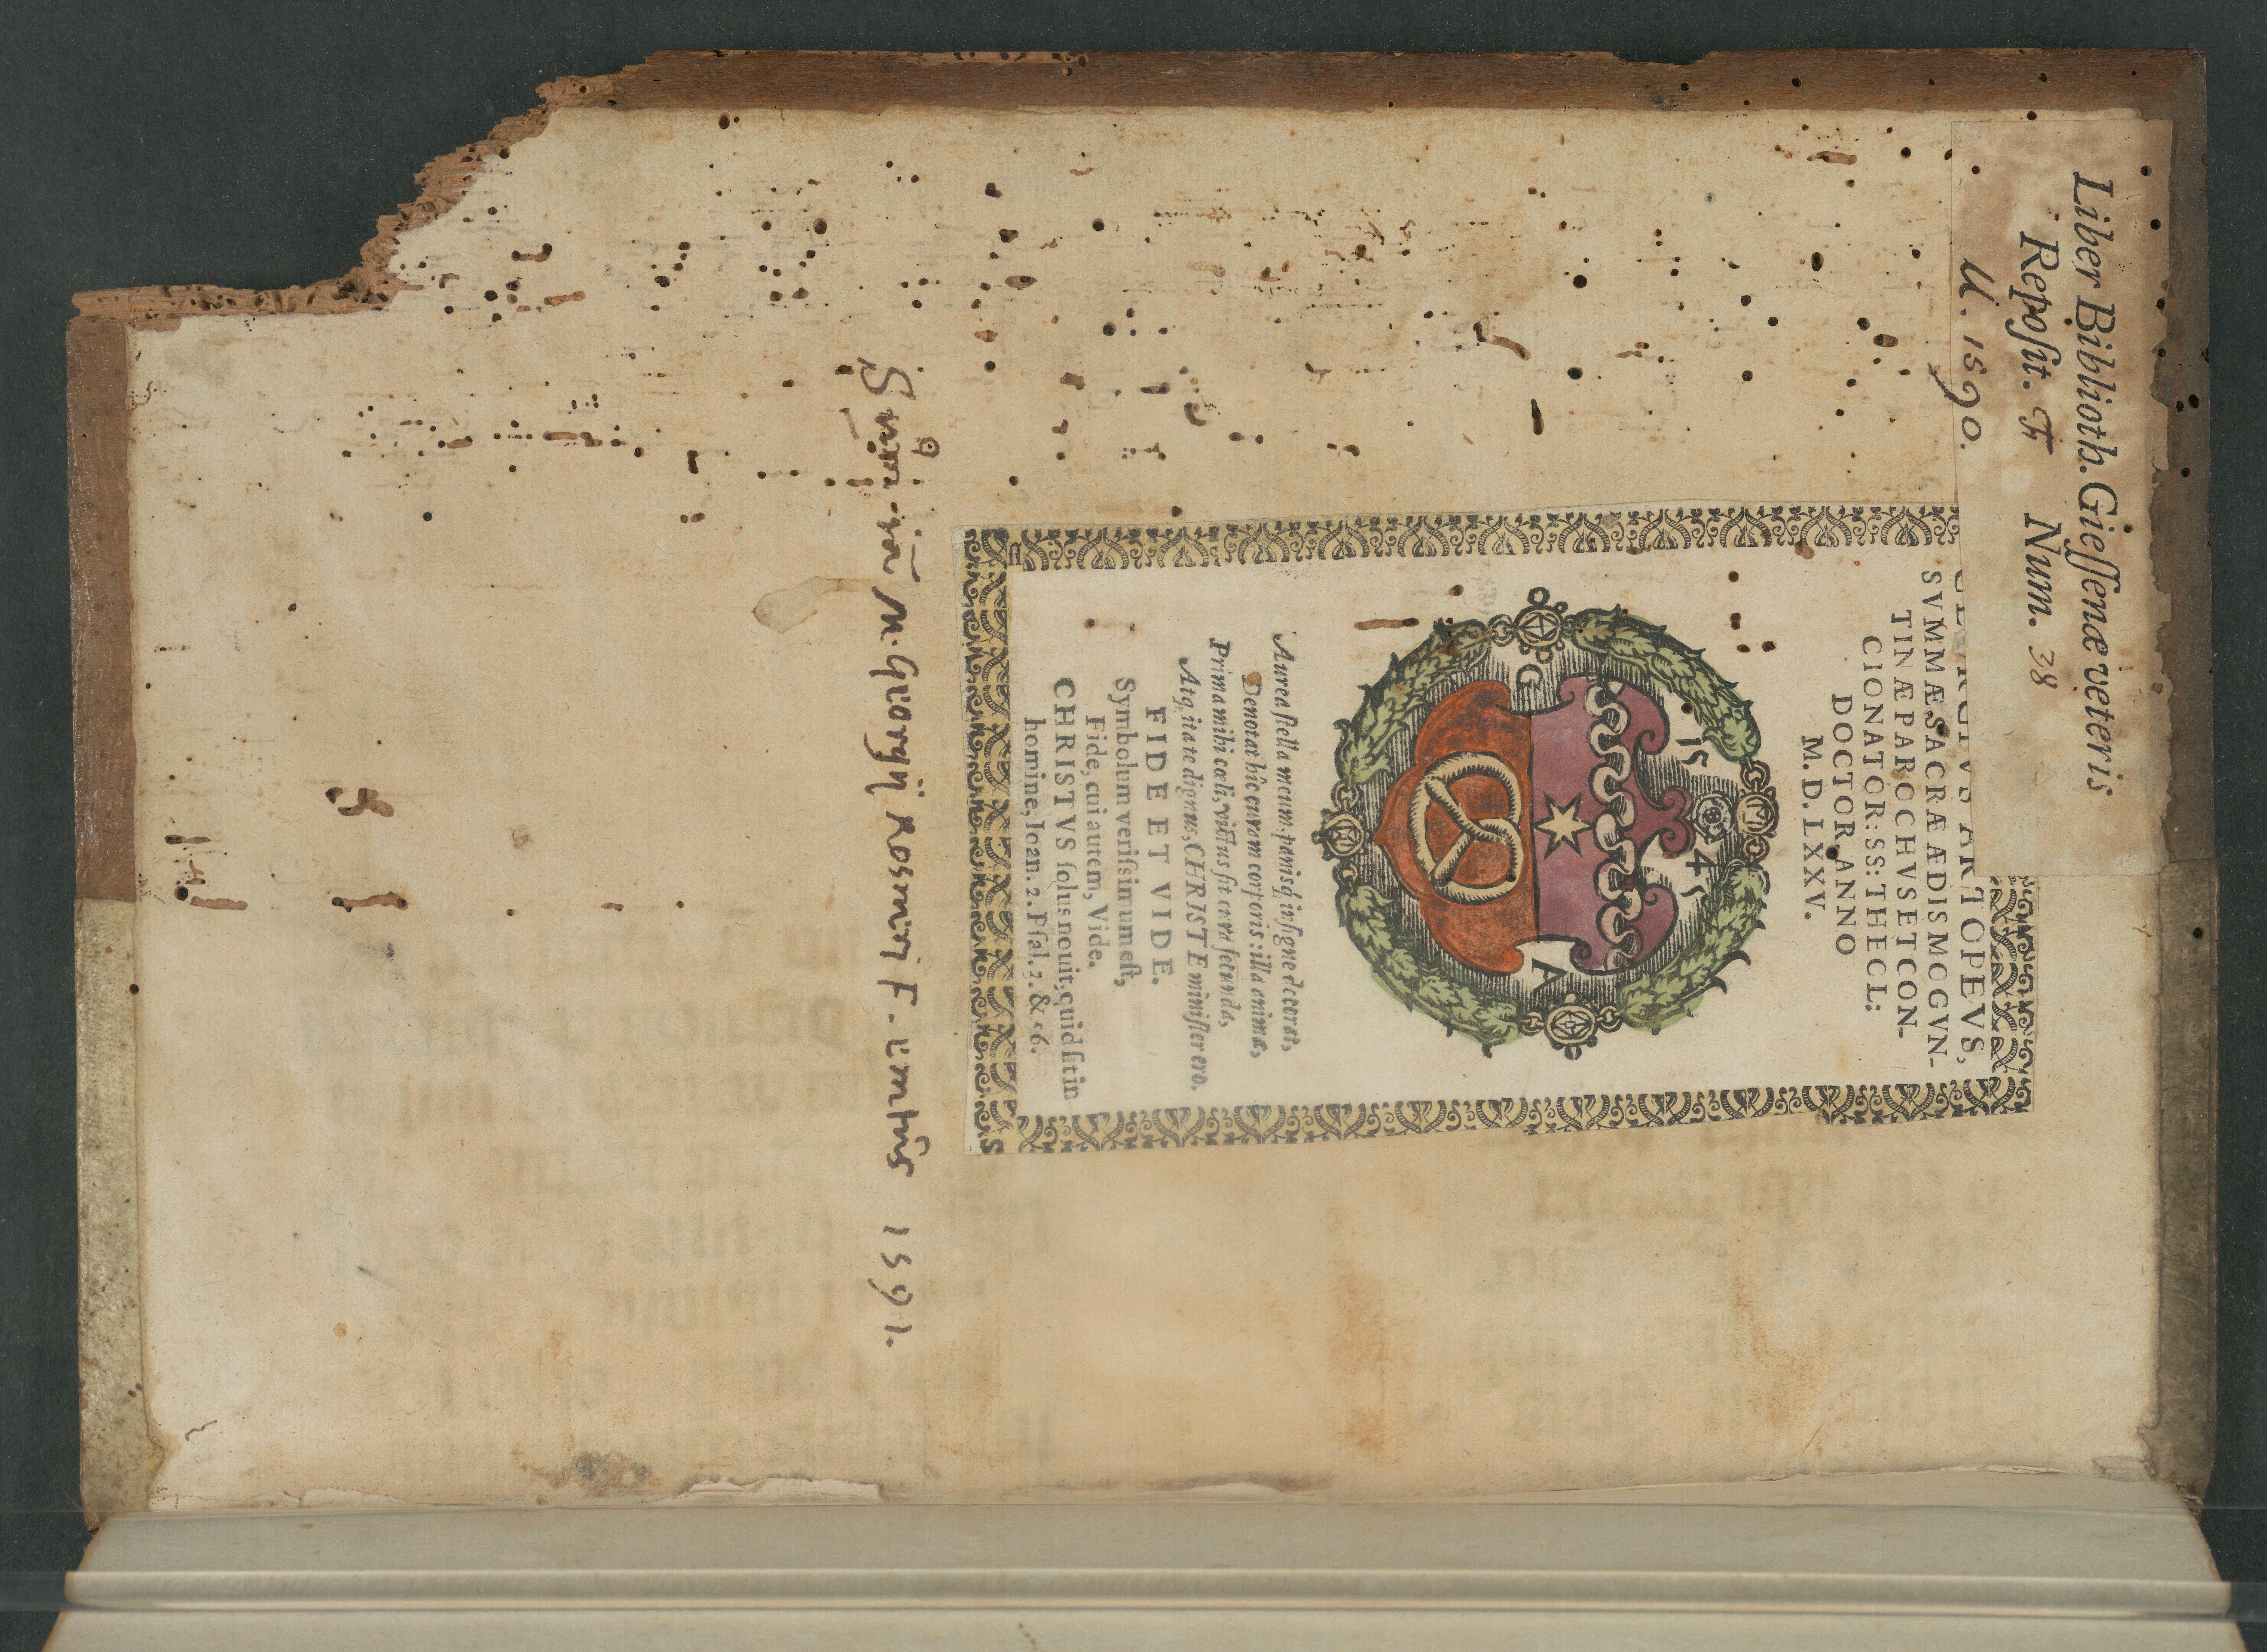 Liber Biblioth. Gieſſenæ veteris
Repoſit. F Num. 38
U. 1590.
ARTOPEVS,
SVMMÆ SACRÆ ÆDIS MOGVN-
TINÆ PAROCHVS ET CON-
CIONATOR: SS: THECL:
DOCTOR, ANNO
M. D. LXXV.
15 45
G A
Aurea ſtella meum, panisq́; inſigne decorat,
Denotat hîc curam corporis: illa animæ,
Prima mihi cœli, victus ſit cura ſecunda,
Atq; ita te dignus, CHRISTE miniſter ero.
FIDE ET VIDE.
Symbolum veriſsimum eſt,
Fide, cui autem, Vide.
CHRISTVS ſolus nouit, quid ſit in
homine, Ioan. 2. Pſal. 3. & 56.
M. Georgij Rosmeri F. emtus 1591.